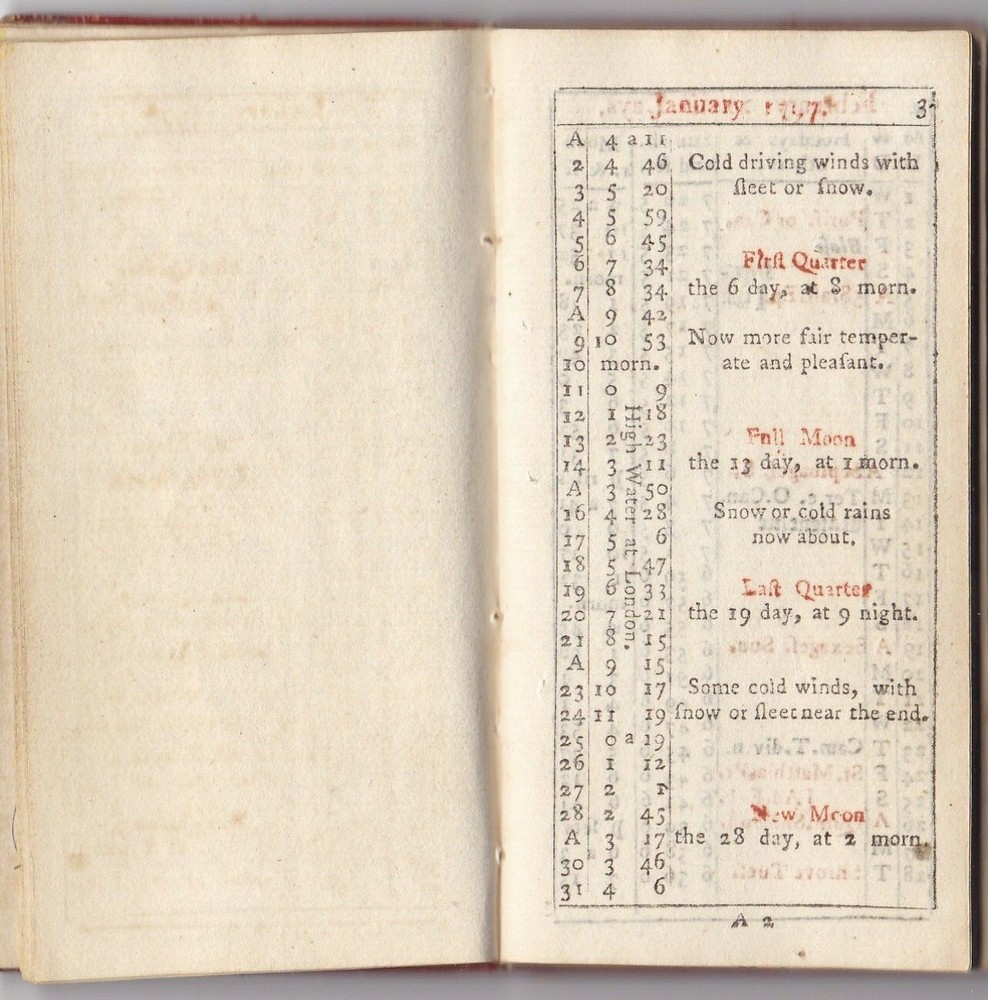 January 3
A 4 a 11
2 4 46 Cold driving winds with
3 5 20 ſleet or ſnow.
4 5 59
5 6 45
6 7 34 Firſt Quarter
7 8 34 the 6 day, at 8 morn.
A 9 42
9 10 53 Now more fair temper-
10 morn. ate and pleaſant.
11 0 9
12 1 18
13 2 23 Full Moon
14 3 11 the 13 day, at 1 morn.
A 3 50
16 4 28 Snow or cold rains
17 5 6 now about.
18 5 47
19 6 33 Laſt Quarter
20 7 21 the 19 day, at 9 night.
21 8 15
A 9 15
23 10 17 Some cold winds, with
24 11 19 ſnow or ſleet near the end.
25 0 a 19
26 1 12
27 2 1
28 2 45 New Moon
A 3 17 the 28 day, at 2 morn.
30 3 46
31 4 6
High Water at London.
A 2